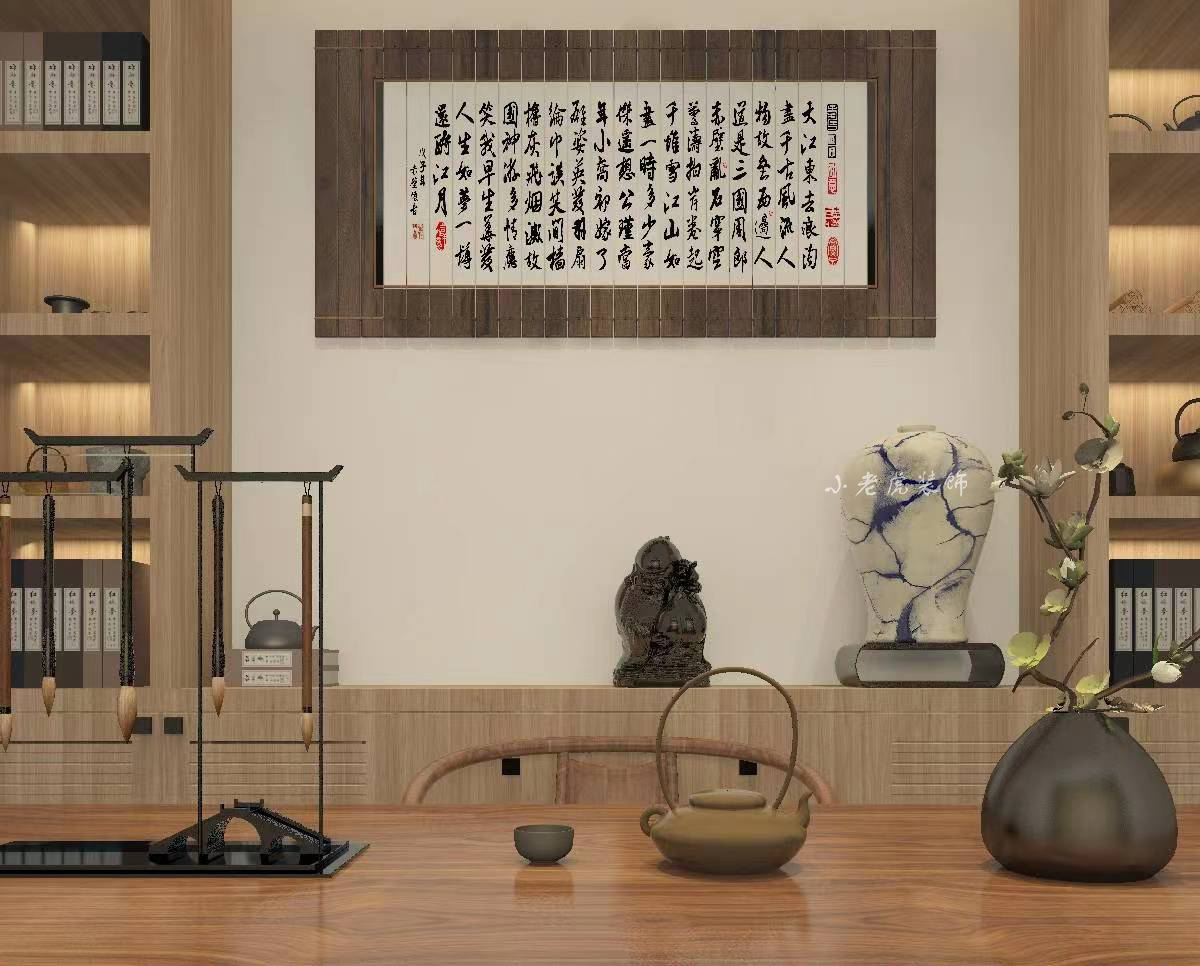 大江東去浪淘
盡千古風流人
物故壘西邊人
道是三國周郎
赤壁亂石穿空
驚濤拍岸卷起
千堆雪江山如
畫一時多少豪
傑遙想公瑾當
年小喬初嫁了
雄姿英發羽扇
綸巾談笑間檣
櫓灰飛烟滅故
國神游多情應
笑我早生華發
人生如夢一樽
還酹江月
戊子年
赤壁懷古
小老虎装饰